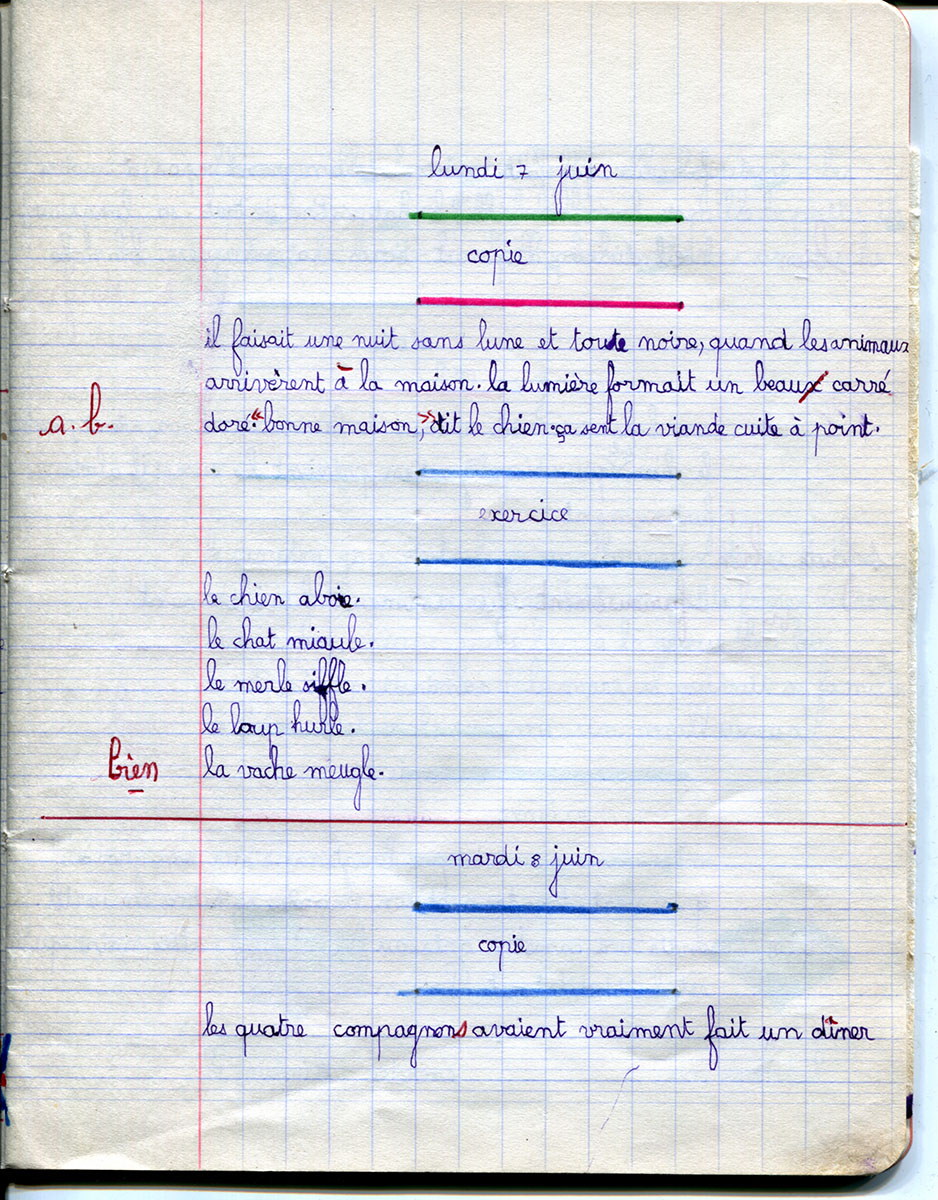 lundi 7 juin
copie
il faisait une nuit sans lune et toute noire, quand les animaux
arrivèrent à la maison. la lumière formait un beaux carré
a. b.
doré. "bonne maison," dit le chien. ça sent la viande cuite à point.
exercice
le chien aboie.
le chat miaule.
le merle siffle.
le loup hurle.
bien
la vache meugle.
mardi 8 juin
copie
les quatre compagnons avaient vraiment fait un dîner